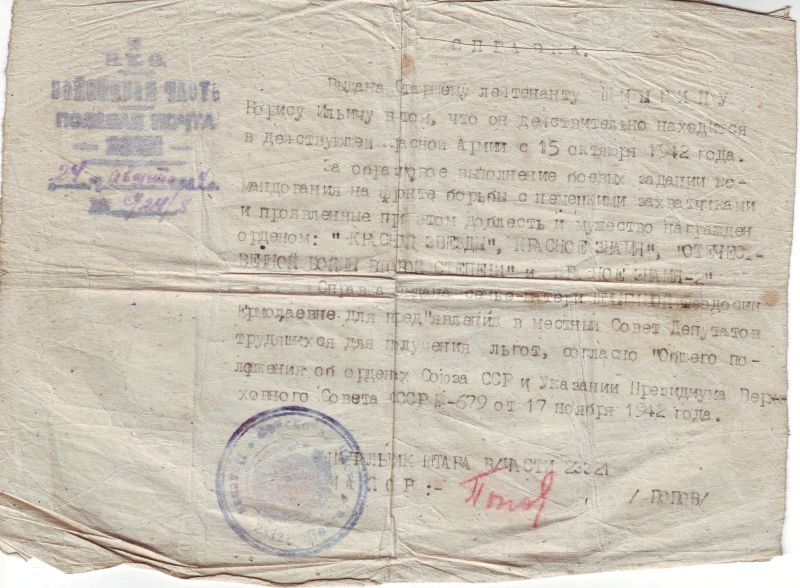 Н.К.О.
ВОЙСКОВАЯ ЧАСТЬ
ПОЛЕВАЯ ПОЧТА
24 августа
№
СПРАВКА.
Выдана Старшему лейтенанту
Борису Ильичу в том, что он действительно находится
в действующей Красной Армии с 15 октября 1942 года.
За образцовое выполнение боевых задании ко-
мандования на фронте борьбы с немецкими захватчиками
и проявленные при этом доблесть и мужество награжден
орденом: "КРАСНОЙ ЗВЕЗДЫ", "КРАСНОЕ ЗНАМЯ", "ОТЕЧЕСТ-
ВЕННОЙ ВОЙНЫ ВТОРОЙ СТЕПЕНИ" и "КРАСНОЕ ЗНАМЯ-2"
Справка выдана семье-матери Феодосии
Ермолаевне для пред"явления в местный Совет Депутатов
трудящихся для получения льгот, согласно "Общего по-
ложения об орденах Союза ССР и Указании Президиума Верх-
ховного Совета СССР №-679 от 17 ноября 1942 года.
НАЧАЛЬНИК ШТАБА В/ЧАСТИ 23321
МАЙОР:- Попов /ПОПОВ/